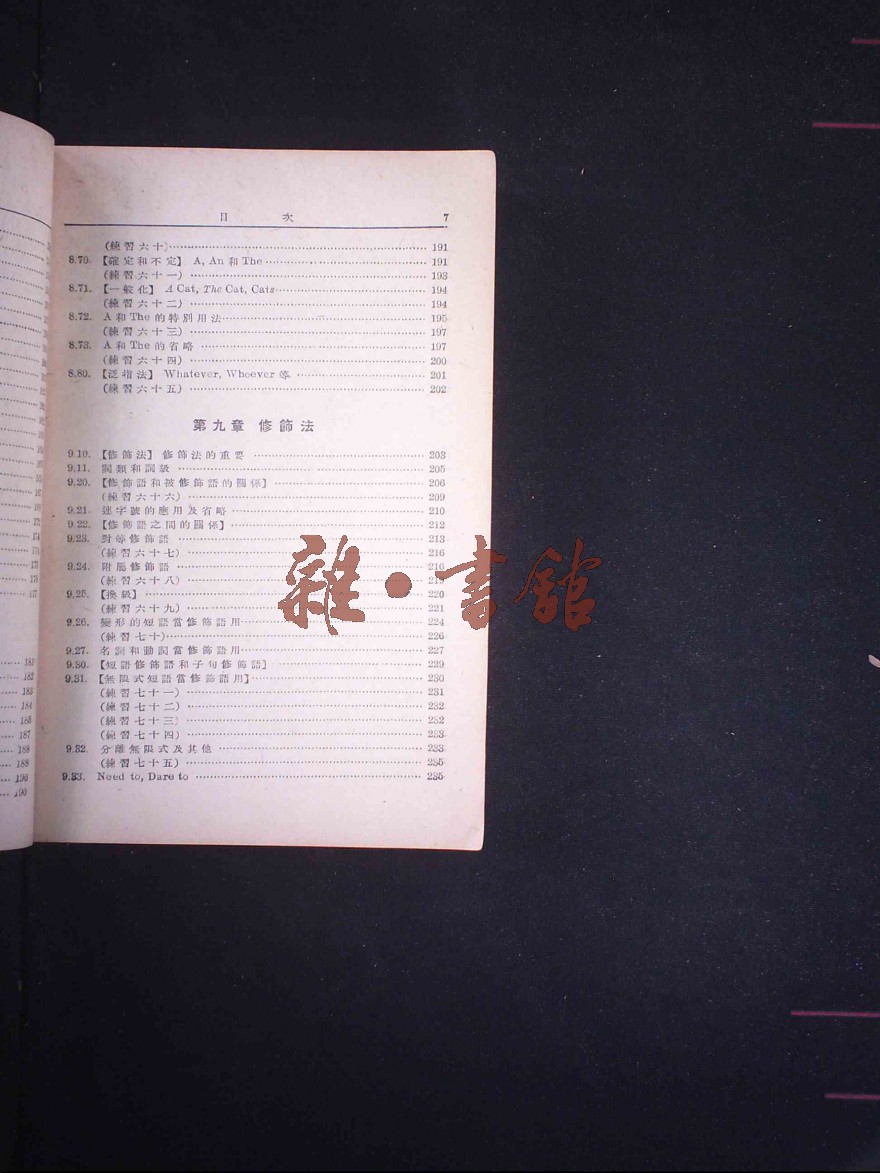 181
182
183
184
185
187
188
188
190
190
目 次 7
(練習六十) 191
8.70. 【確定和不定】 A, An 和 The 191
(練習六十一) 193
8.71. 【一般化】 A Cat, The Cat, Cats 194
(練習六十二) 194
8.72. A 和 The 的特別用法 195
(練習六十三) 197
8.73. A 和 The 的省略 197
(練習六十四) 200
8.80. 【泛指法】 Whatever, Whoever 等 201
(練習六十五) 202
第九章 修飾法
9.10. 【修飾法】 修飾法的重要 203
9.11. 詞類和詞級 205
9.20. 【修飾語和被修飾語的關係】 206
(練習六十六) 209
9.21. 連字號的應用及省略 210
9.22. 【修飾語之間的關係】 212
9.23. 對等修飾語 213
(練習六十七) 216
9.24. 附屬修飾語 216
(練習六十八)
9.25. 【換級】 220
(練習六十九) 221
9.26. 變形的短語當修飾語用 224
(練習七十) 226
9.27. 名詞和動詞當修飾語用 227
9.30. 【短語修飾語和子句修飾語】 229
9.31. 【無限式短語當修飾語用】 230
(練習七十一) 231
(練習七十二) 232
(練習七十三) 232
(練習七十四) 233
9.32. 分離無限式及其他 233
(練習七十五) 235
9.33. Need to, Dare to 235
雜·書館